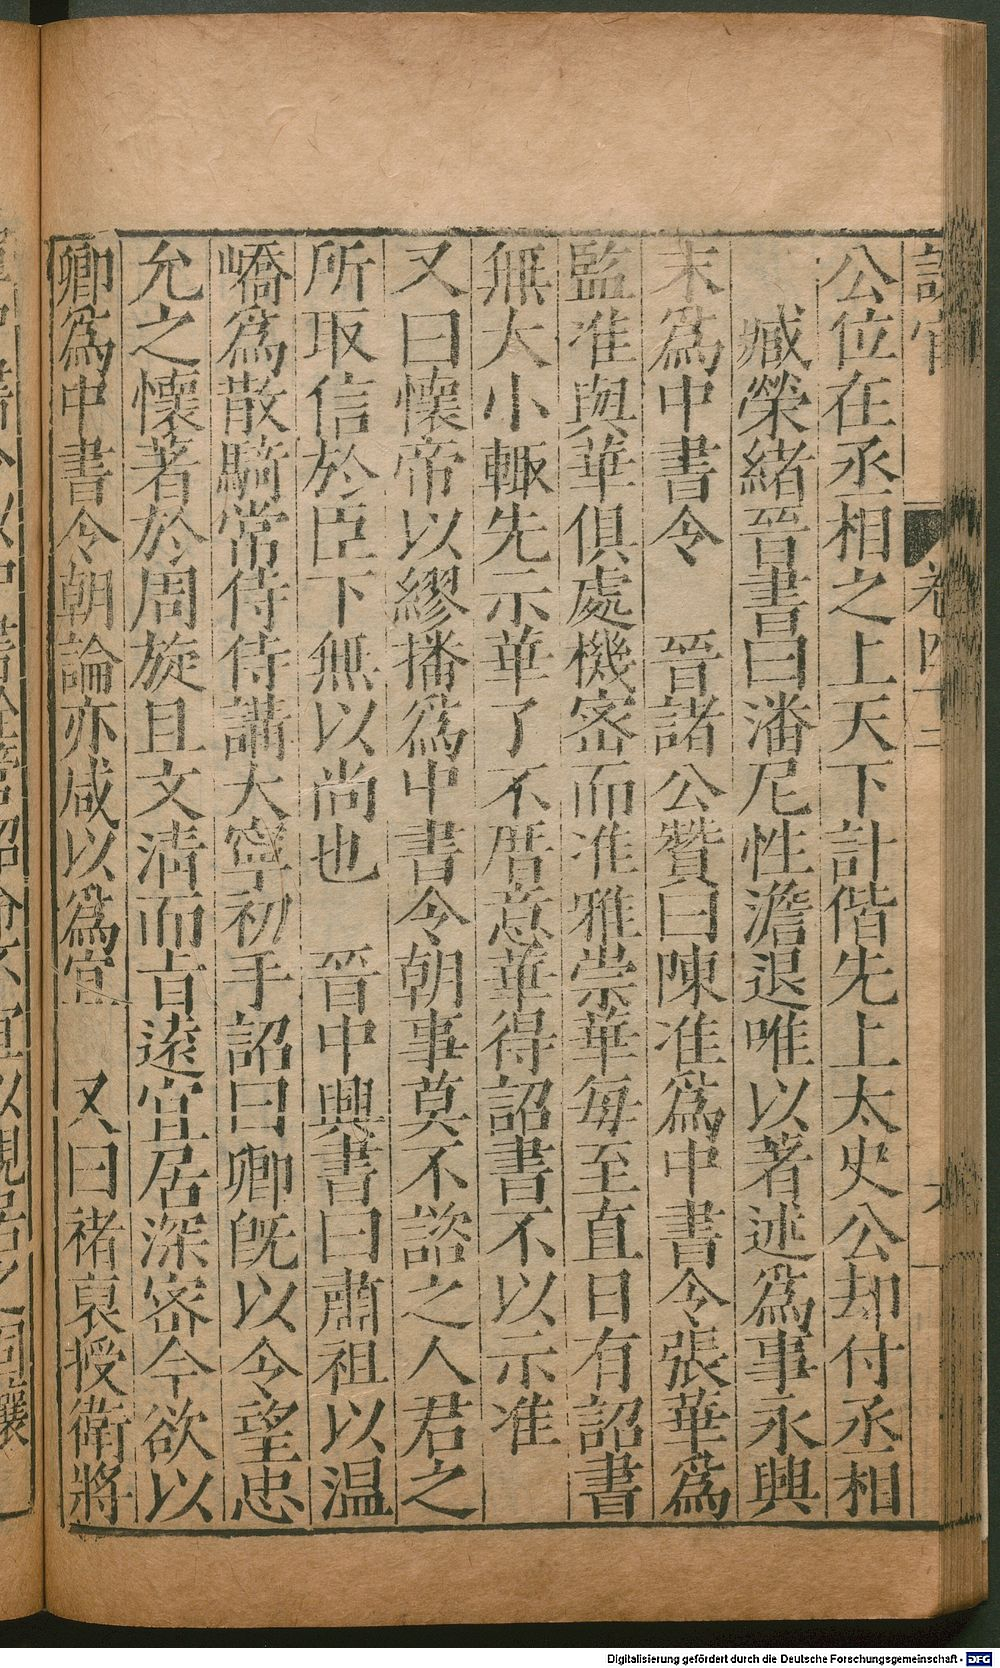 卷四十二
公位在丞相之上天下計偕先上太史公却付丞相
臧榮緒晉書曰潘尼性澹退唯以著述爲事永興
末爲中書令　晉諸公贊曰陳准爲中書令張華爲
監准與華俱處機密而准雅崇華每至直日有詔書
無大小輒先示華了不厝意華得詔書不以示准
又曰懷帝以繆播爲中書令朝事莫不諮之人君之
所取信於臣下無以尚也　晉中興書曰肅祖以温
嶠爲散騎常侍侍講大寧初手詔曰卿旣以令望忠
允之懷著於周旋且文淸而旨遠宜居深密今欲以
卿爲中書令朝論亦咸以爲宜　又曰褚裒授衛將
Digitalisierung gefördert durch die Deutsche Forschungsgemeinschaft - DFG